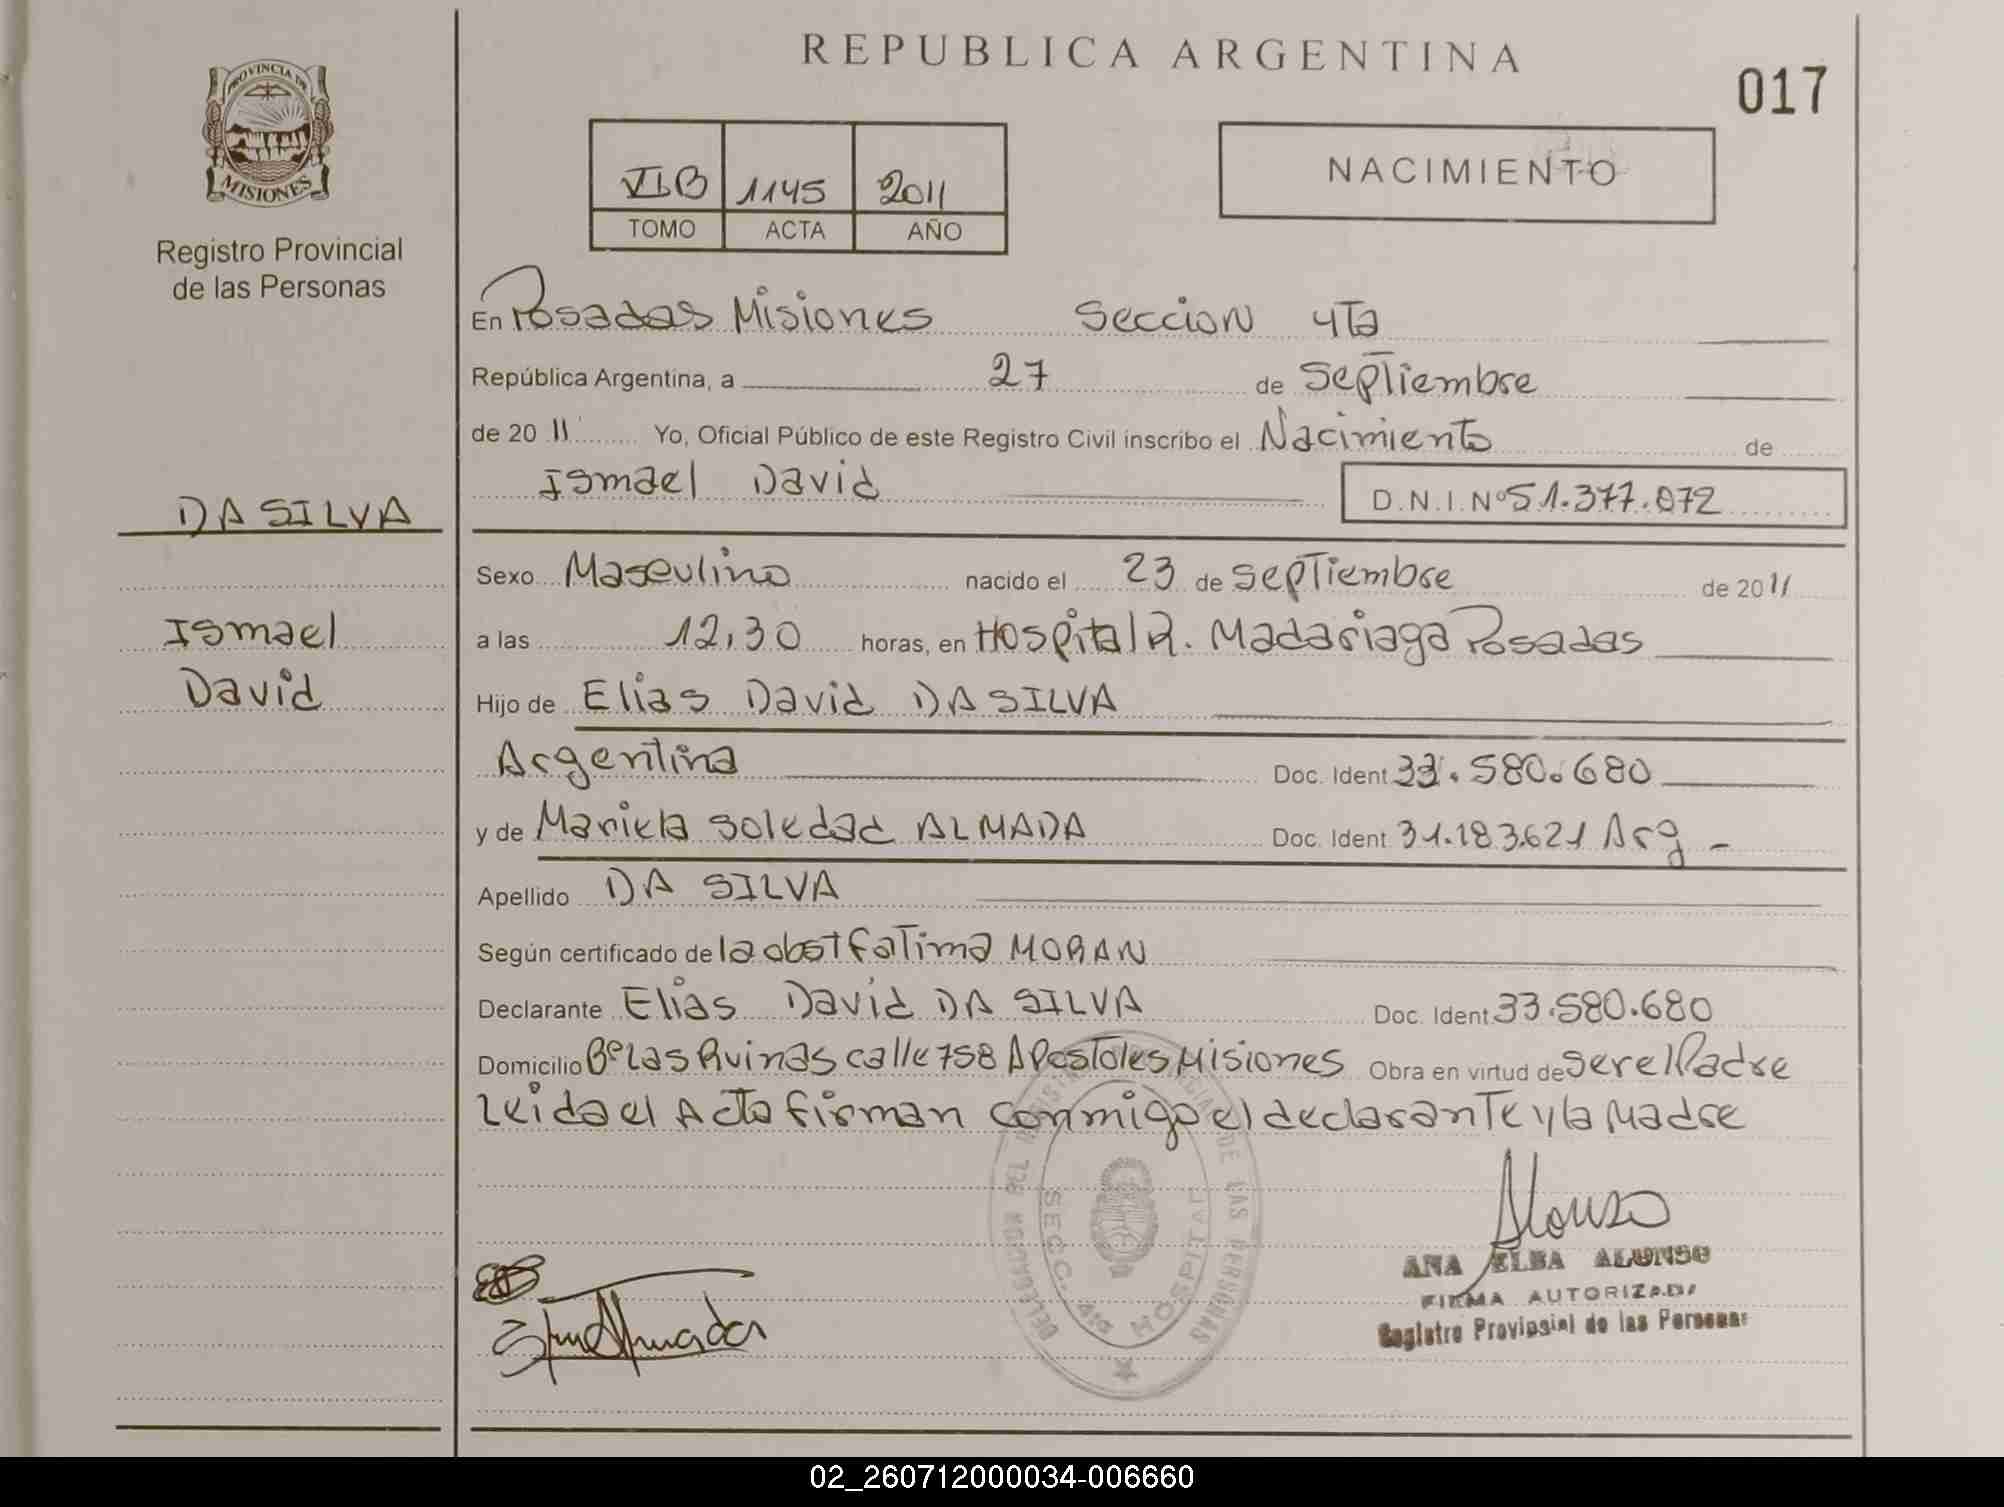 REPUBLICA ARGENTINA
017
PROVINCIA DE
MISIONES
Registro Provincial
de las Personas
VI B 1145 2011
TOMO ACTA AÑO
NACIMIENTO
En Posadas Misiones Seccion 4ta
República Argentina, a 27 de Septiembre
de 20 11 Yo, Oficial Público de este Registro Civil inscribo el Nacimiento de
Ismael David D.N.I.Nº 51.377.072
DA SILVA
Ismael
David
Sexo Masculino nacido el 23 de Septiembre de 20 11
a las 12,30 horas, en Hospital R. Madariaga Posadas
Hijo de Elias David DA SILVA
Argentina Doc. Ident 33.580.680
y de Mariela Soledad ALMADA Doc. Ident 31.183.621 Arg -
Apellido DA SILVA
Según certificado de la obst Fatima MORAN
Declarante Elias David DA SILVA Doc. Ident. 33.580.680
Domicilio Bº Las Ruinas calle 758 Apostoles Misiones Obra en virtud de ser el Padre
Leida el Acta firman conmigo el declarante y la Madre
DELEGACION DEL REGISTRO PROVINCIAL DE LAS PERSONAS
SECC. 4ta HOSPITAL
Alonso
ANA ELBA ALONSO
FIRMA AUTORIZADA
Registro Provincial de las Personas
02_260712000034-006660